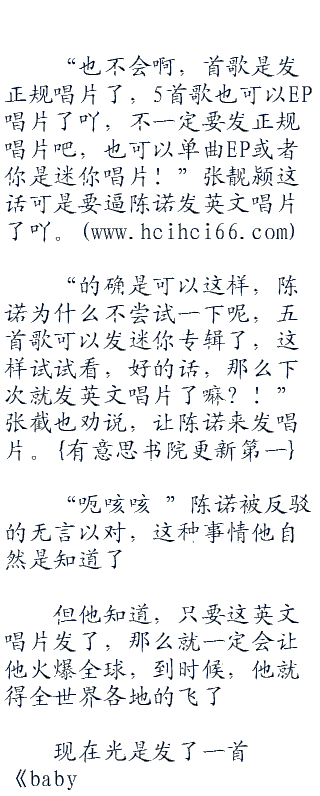 “也不会啊，首歌是发
正规唱片了，5首歌也可以EP
唱片了吖，不一定要发正规
唱片吧，也可以单曲EP或者
你是迷你唱片！”张靓颍这
话可是要逼陈诺发英文唱片
了吖。(www.hcihci66.com)
“的确是可以这样，陈
诺为什么不尝试一下呢，五
首歌可以发迷你专辑了，这
样试试看，好的话，那么下
次就发英文唱片了嘛？！”
张截也劝说，让陈诺来发唱
片。{有意思书院更新第一}
“呃咳咳 ”陈诺被反驳
的无言以对，这种事情他自
然是知道了
但他知道，只要这英文
唱片发了，那么就一定会让
他火爆全球，到时候，他就
得全世界各地的飞了
现在光是发了一首
《baby